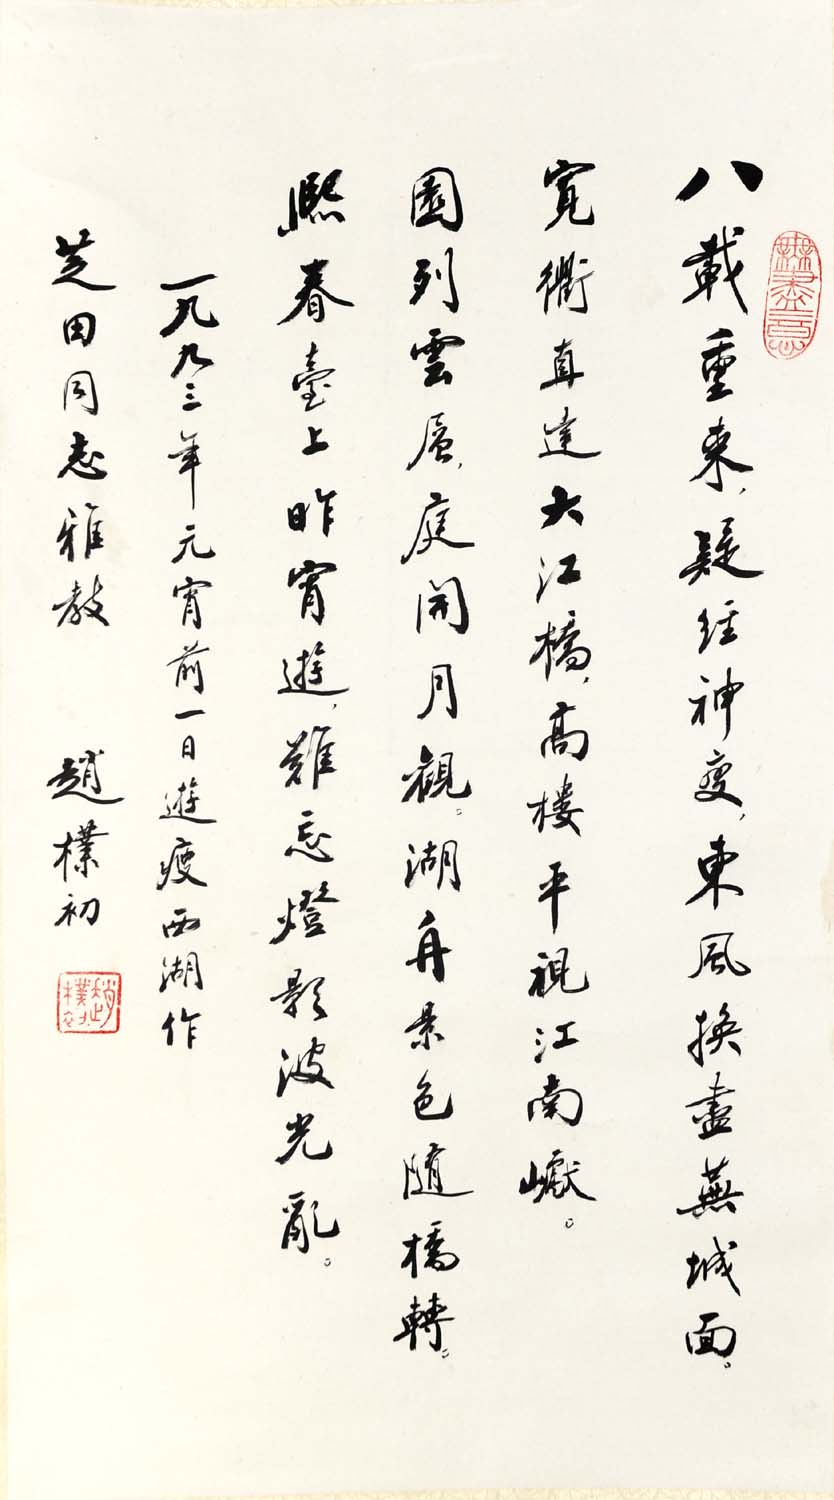 八載重來，疑經神變，東風換盡蕪城面。
寬衢直達大江橋，高樓平視江南巘。
園列雲屏，庭開月觀。湖舟景色隨橋轉。
熙春臺上昨宵遊，難忘燈影波光亂。
一九九三年元宵前一日遊瘦西湖作
芝田同志雅教 趙樸初
趙樸初
無盡意